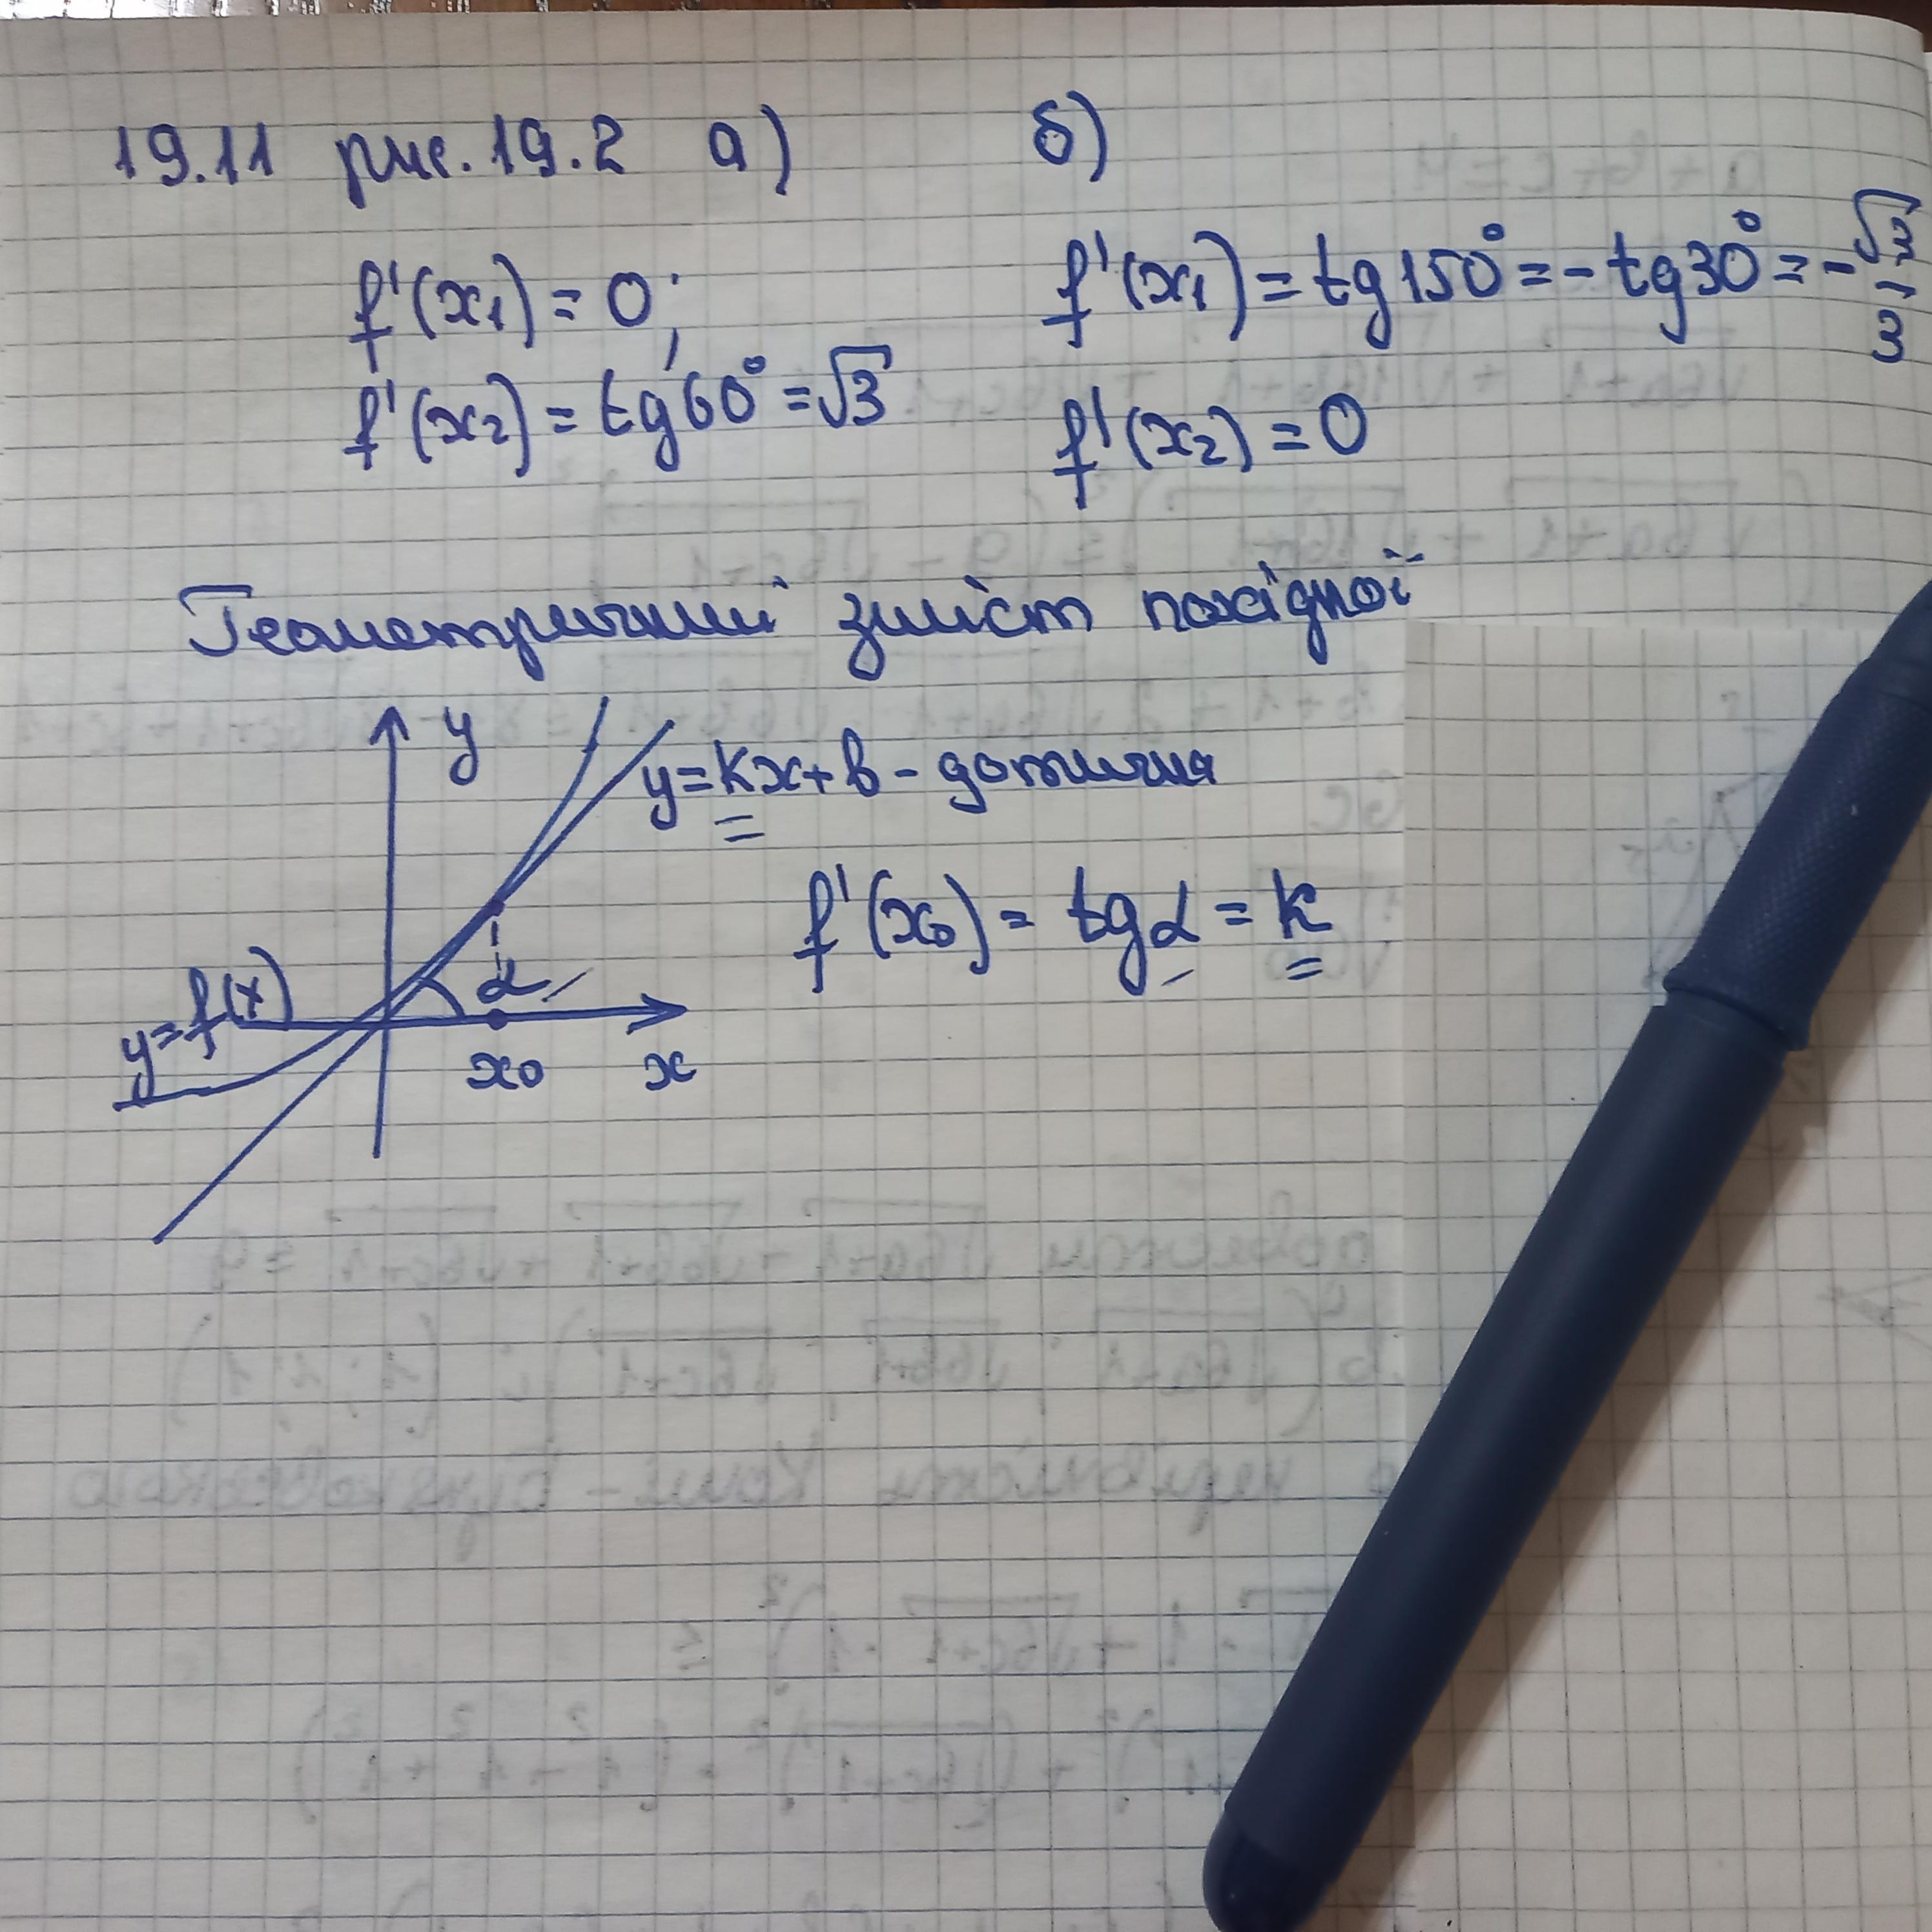 19.11 рис. 19.2 а) б)
f'(x₁) = 0;
f'(x₂) = tg 60° = √3
f'(x₁) = tg 150° = - tg 30° = - √3/3
f'(x₂) = 0
Геометричний зміст похідної
y
y = kx + b - дотична
f'(x₀) = tg α = k
y = f(x)
α
x₀ x